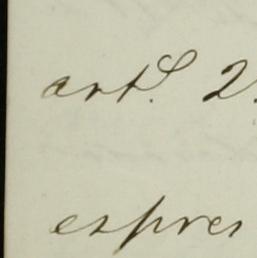 artl. 2.
expres